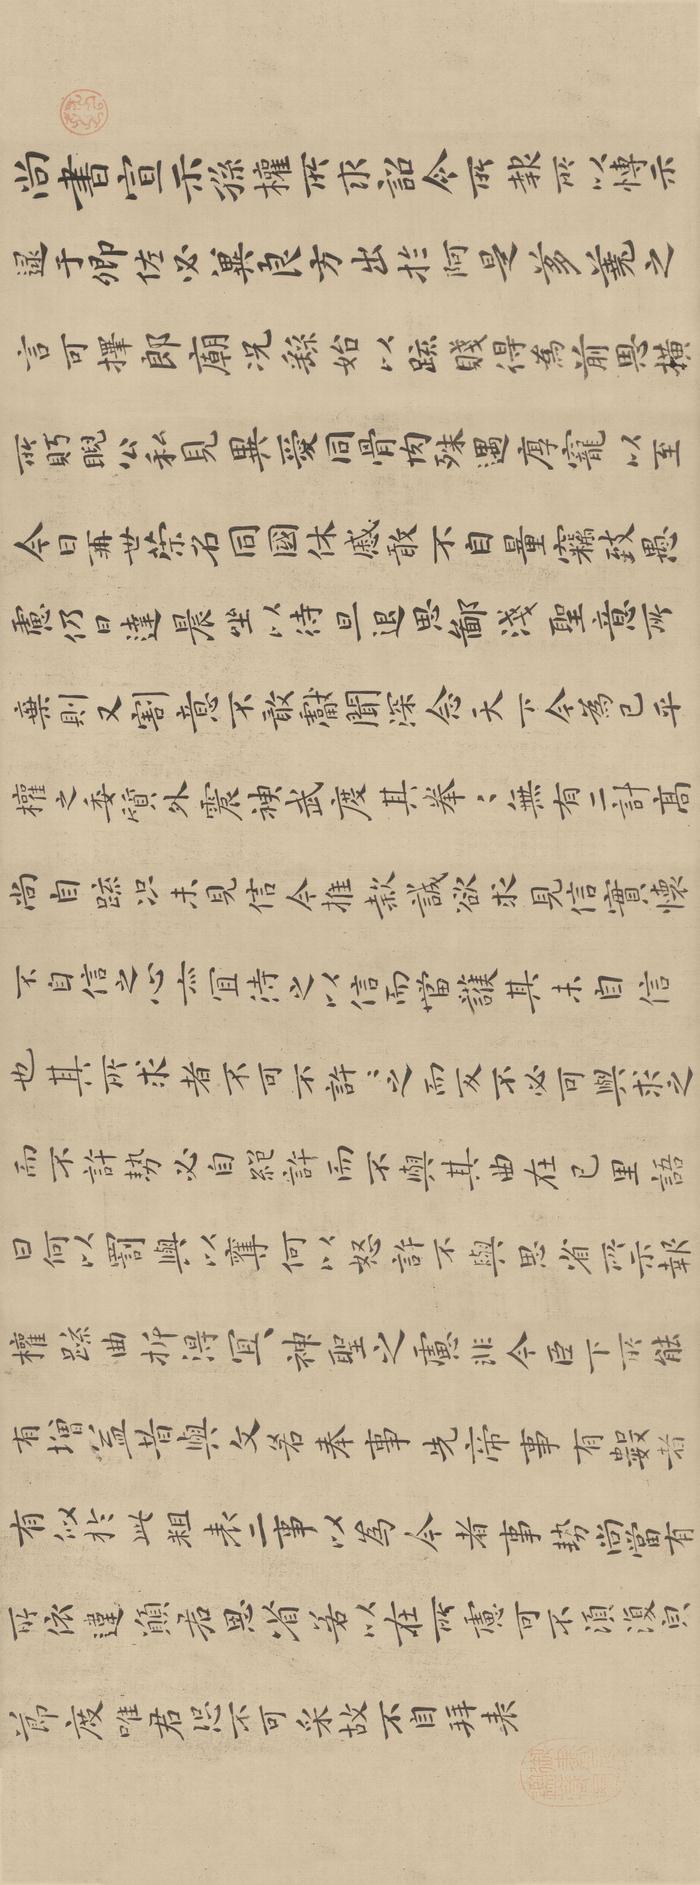 尚書宣示孫權所求詔令所報所以博示
逮于卿佐必冀良方出於阿是芻蕘之
言可擇郎廟況繇始以疏賤得為前恩橫
所眄睨公私見異愛同骨肉殊遇厚寵以至
今日再世榮名同國休慼敢不自量竊致愚
慮仍日達晨坐以待旦退思鄙淺聖意所
棄則又割意不敢獻聞深念天下今為已平
權之委質外震神武度其拳〻無有二計高
尚自疏況未見信今推款誠欲求見信實懷
不自信之心亦宜待之以信而當護其未自信
也其所求者不可不許〻之而反不必可與求之
而不許勢必自絕許而不與其曲在己里語
曰何以罰與以奪何以怒許不與思省所示報
權疏曲折得宜〻神聖之慮非今臣下所能
有增益昔與文若奉事先帝事有數者
有似於此粗表二事以為今者事勢尚當有
所依違願君思省若以在所慮可不須復㒵
節度唯君恐不可采故不自拜表